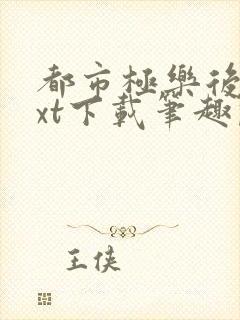 都市極樂後
xt下載筆趣
王俠